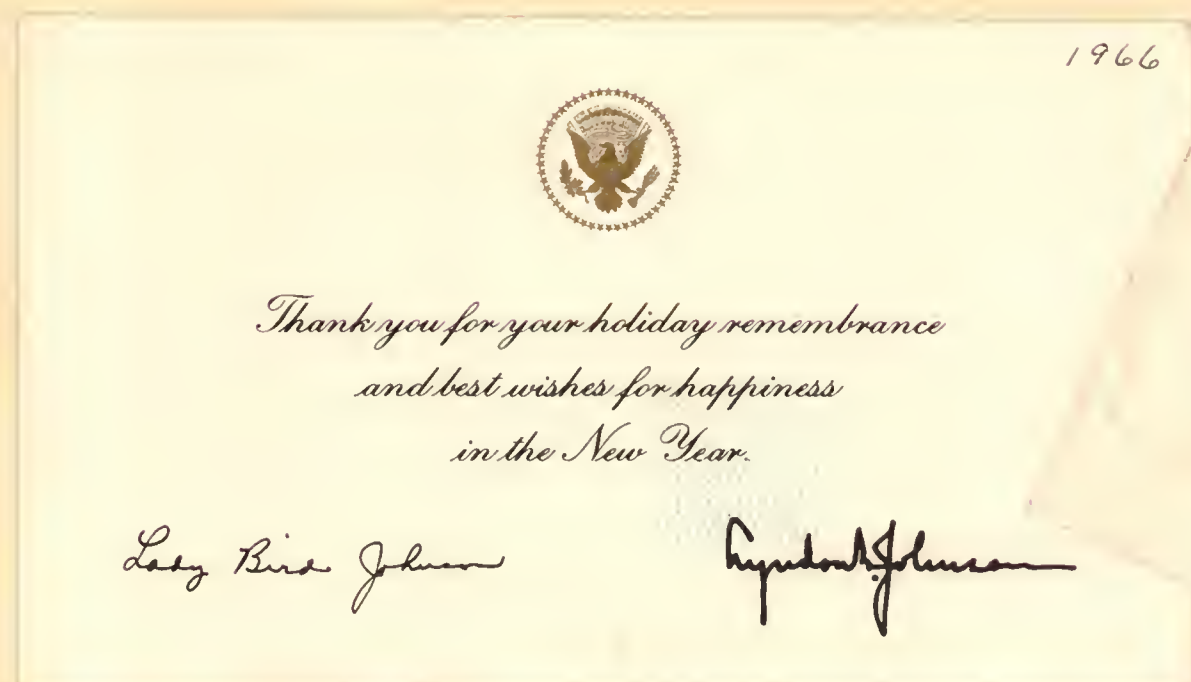 1966
Thank you for your holiday remembrance
and best wishes for happiness
in the New Year.
Lady Bird Johnson
Lyndon B. Johnson